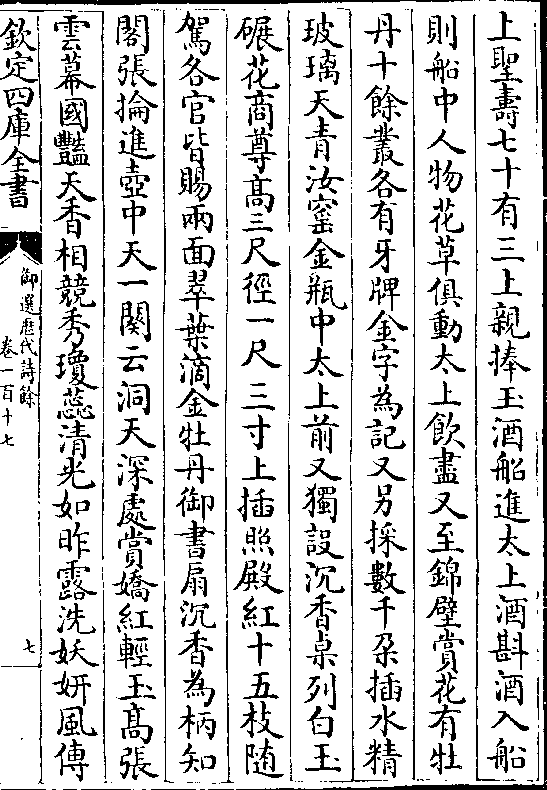 上聖壽七十有三上親捧玉酒船進太上酒斟酒入船
則船中人物花草俱動太上飲盡又至錦壁賞花有牡
丹十餘叢各有牙牌金字為記又另採數千朶插水精
玻璃天青汝窰金瓶中太上前又獨設沉香桌列白玉
碾花商尊髙三尺徑一尺三寸上插照殿紅十五枝随
駕各官皆賜兩面翠葉滴金牡丹御書扇沉香為柄知
閣張掄進壺中天一闋云洞天深處賞嬌紅輕玉髙張
雲幕國豔天香相競秀瓊蕊清光如昨露洗妖妍風傳
欽定四庫全書
御選歷代詩餘
卷一百十七
七